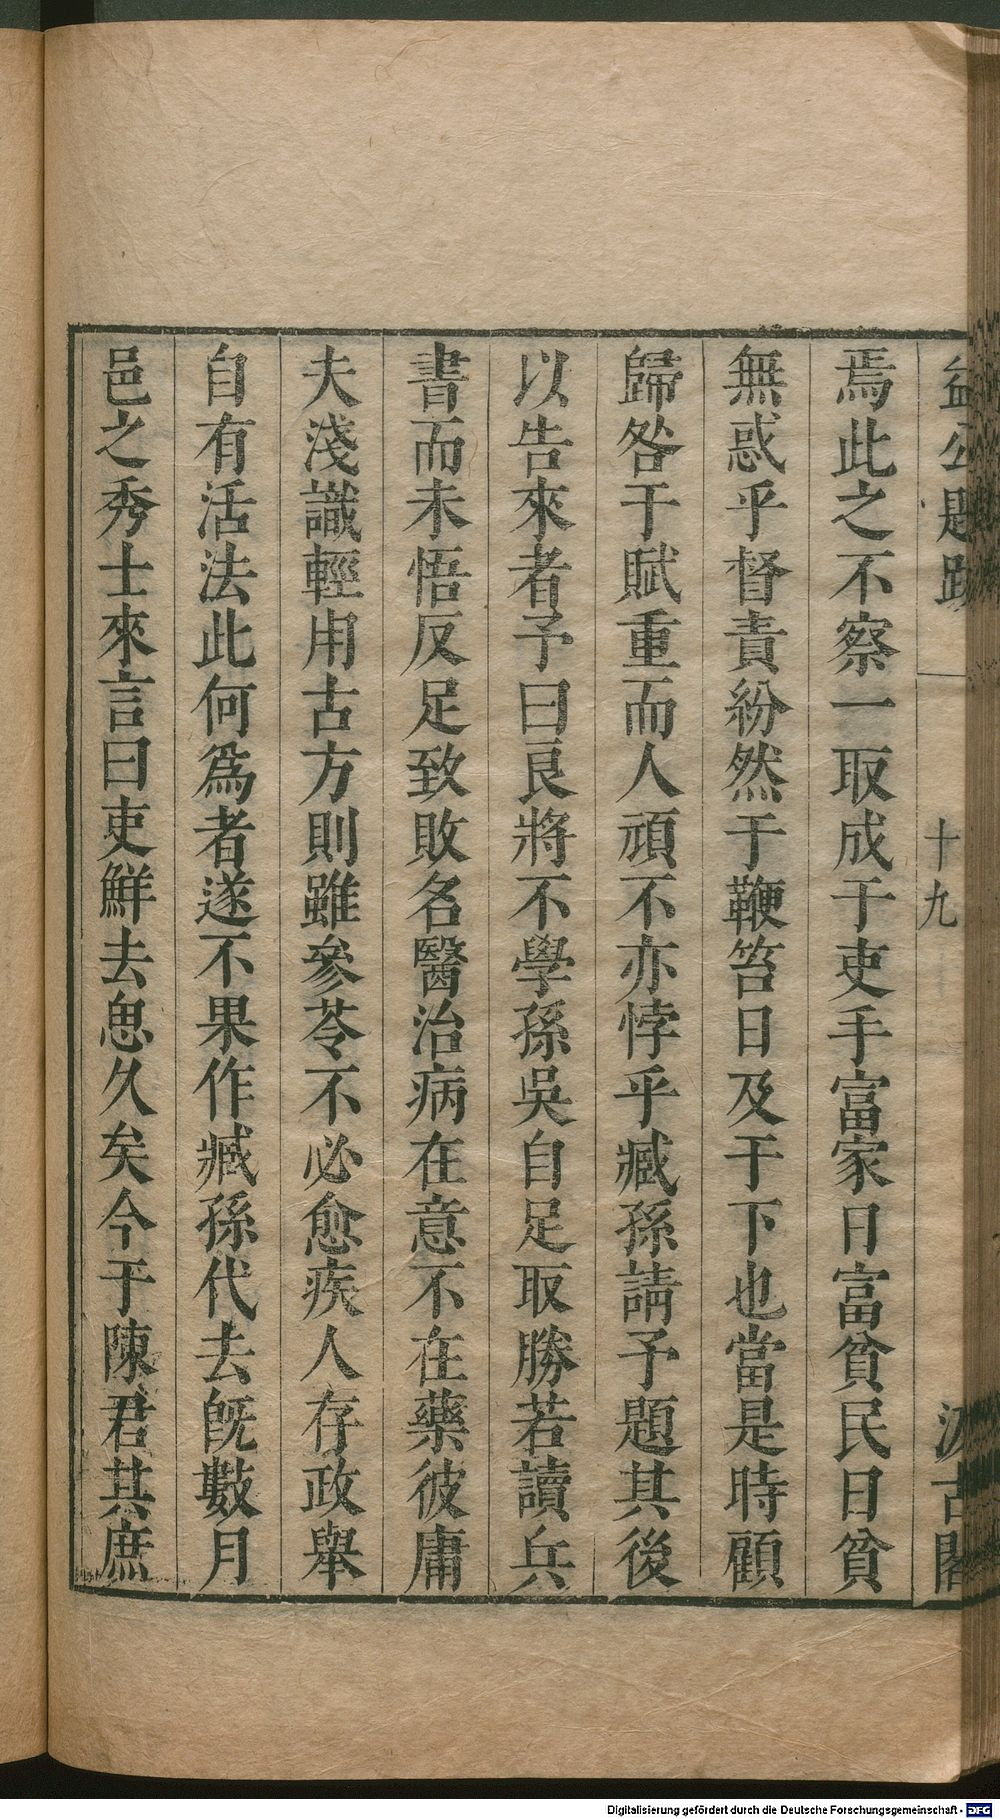 益公題跋 十九 汲古閣
焉此之不察一取成于吏手富家日富貧民日貧
無惑乎督責紛然于鞭笞日及于下也當是時顧
歸咎于賦重而人頑不亦悖乎臧孫請予題其後
以告來者予曰良將不學孫吳自足取勝若讀兵
書而未悟反足致敗名醫治病在意不在藥彼庸
夫淺識輕用古方則雖參苓不必愈疾人存政舉
自有活法此何爲者遂不果作臧孫代去旣數月
邑之秀士來言曰吏鮮去思久矣今于陳君其庶
Digitalisierung gefördert durch die Deutsche Forschungsgemeinschaft - DFG